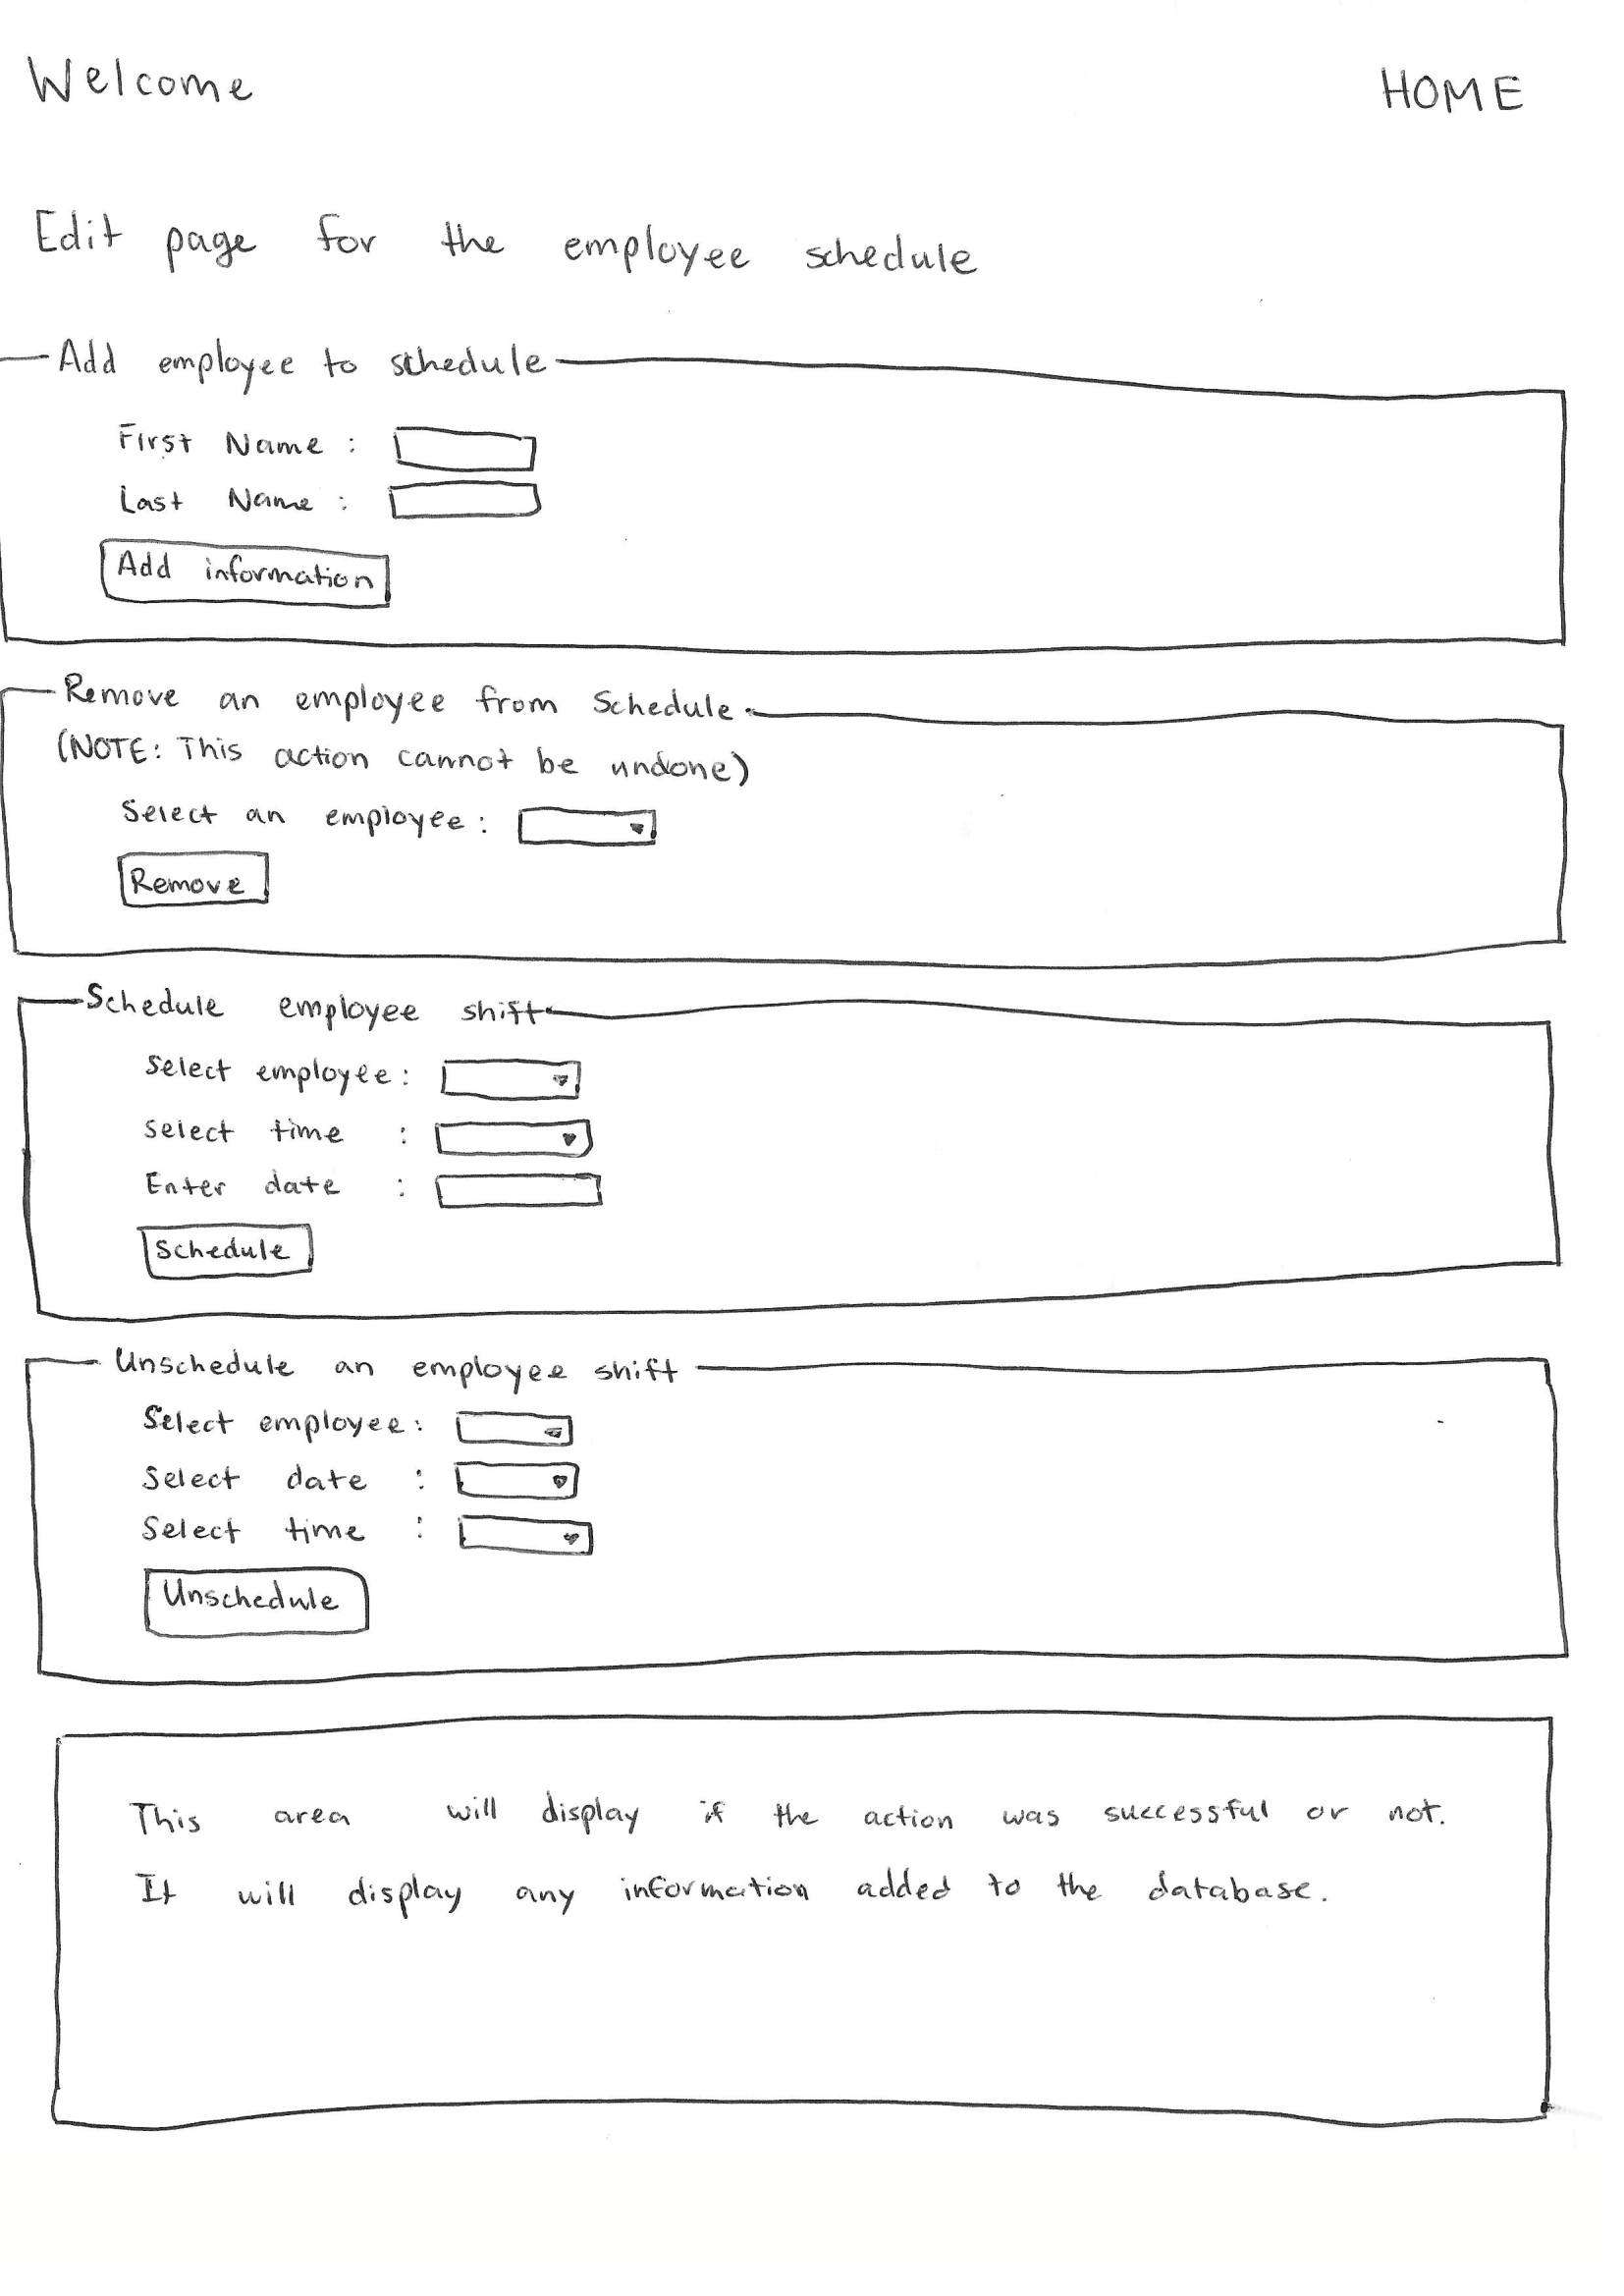 Welcome HOME
Edit page for the employee schedule
Add employee to schedule
First Name :
Last Name :
Add information
Remove an employee from Schedule
(NOTE: This action cannot be undone)
Select an employee:
Remove
Schedule employee shift
Select employee:
Select time :
Enter date :
Schedule
Unschedule an employee shift
Select employee:
Select date :
Select time :
Unschedule
This area will display if the action was successful or not.
It will display any information added to the database.